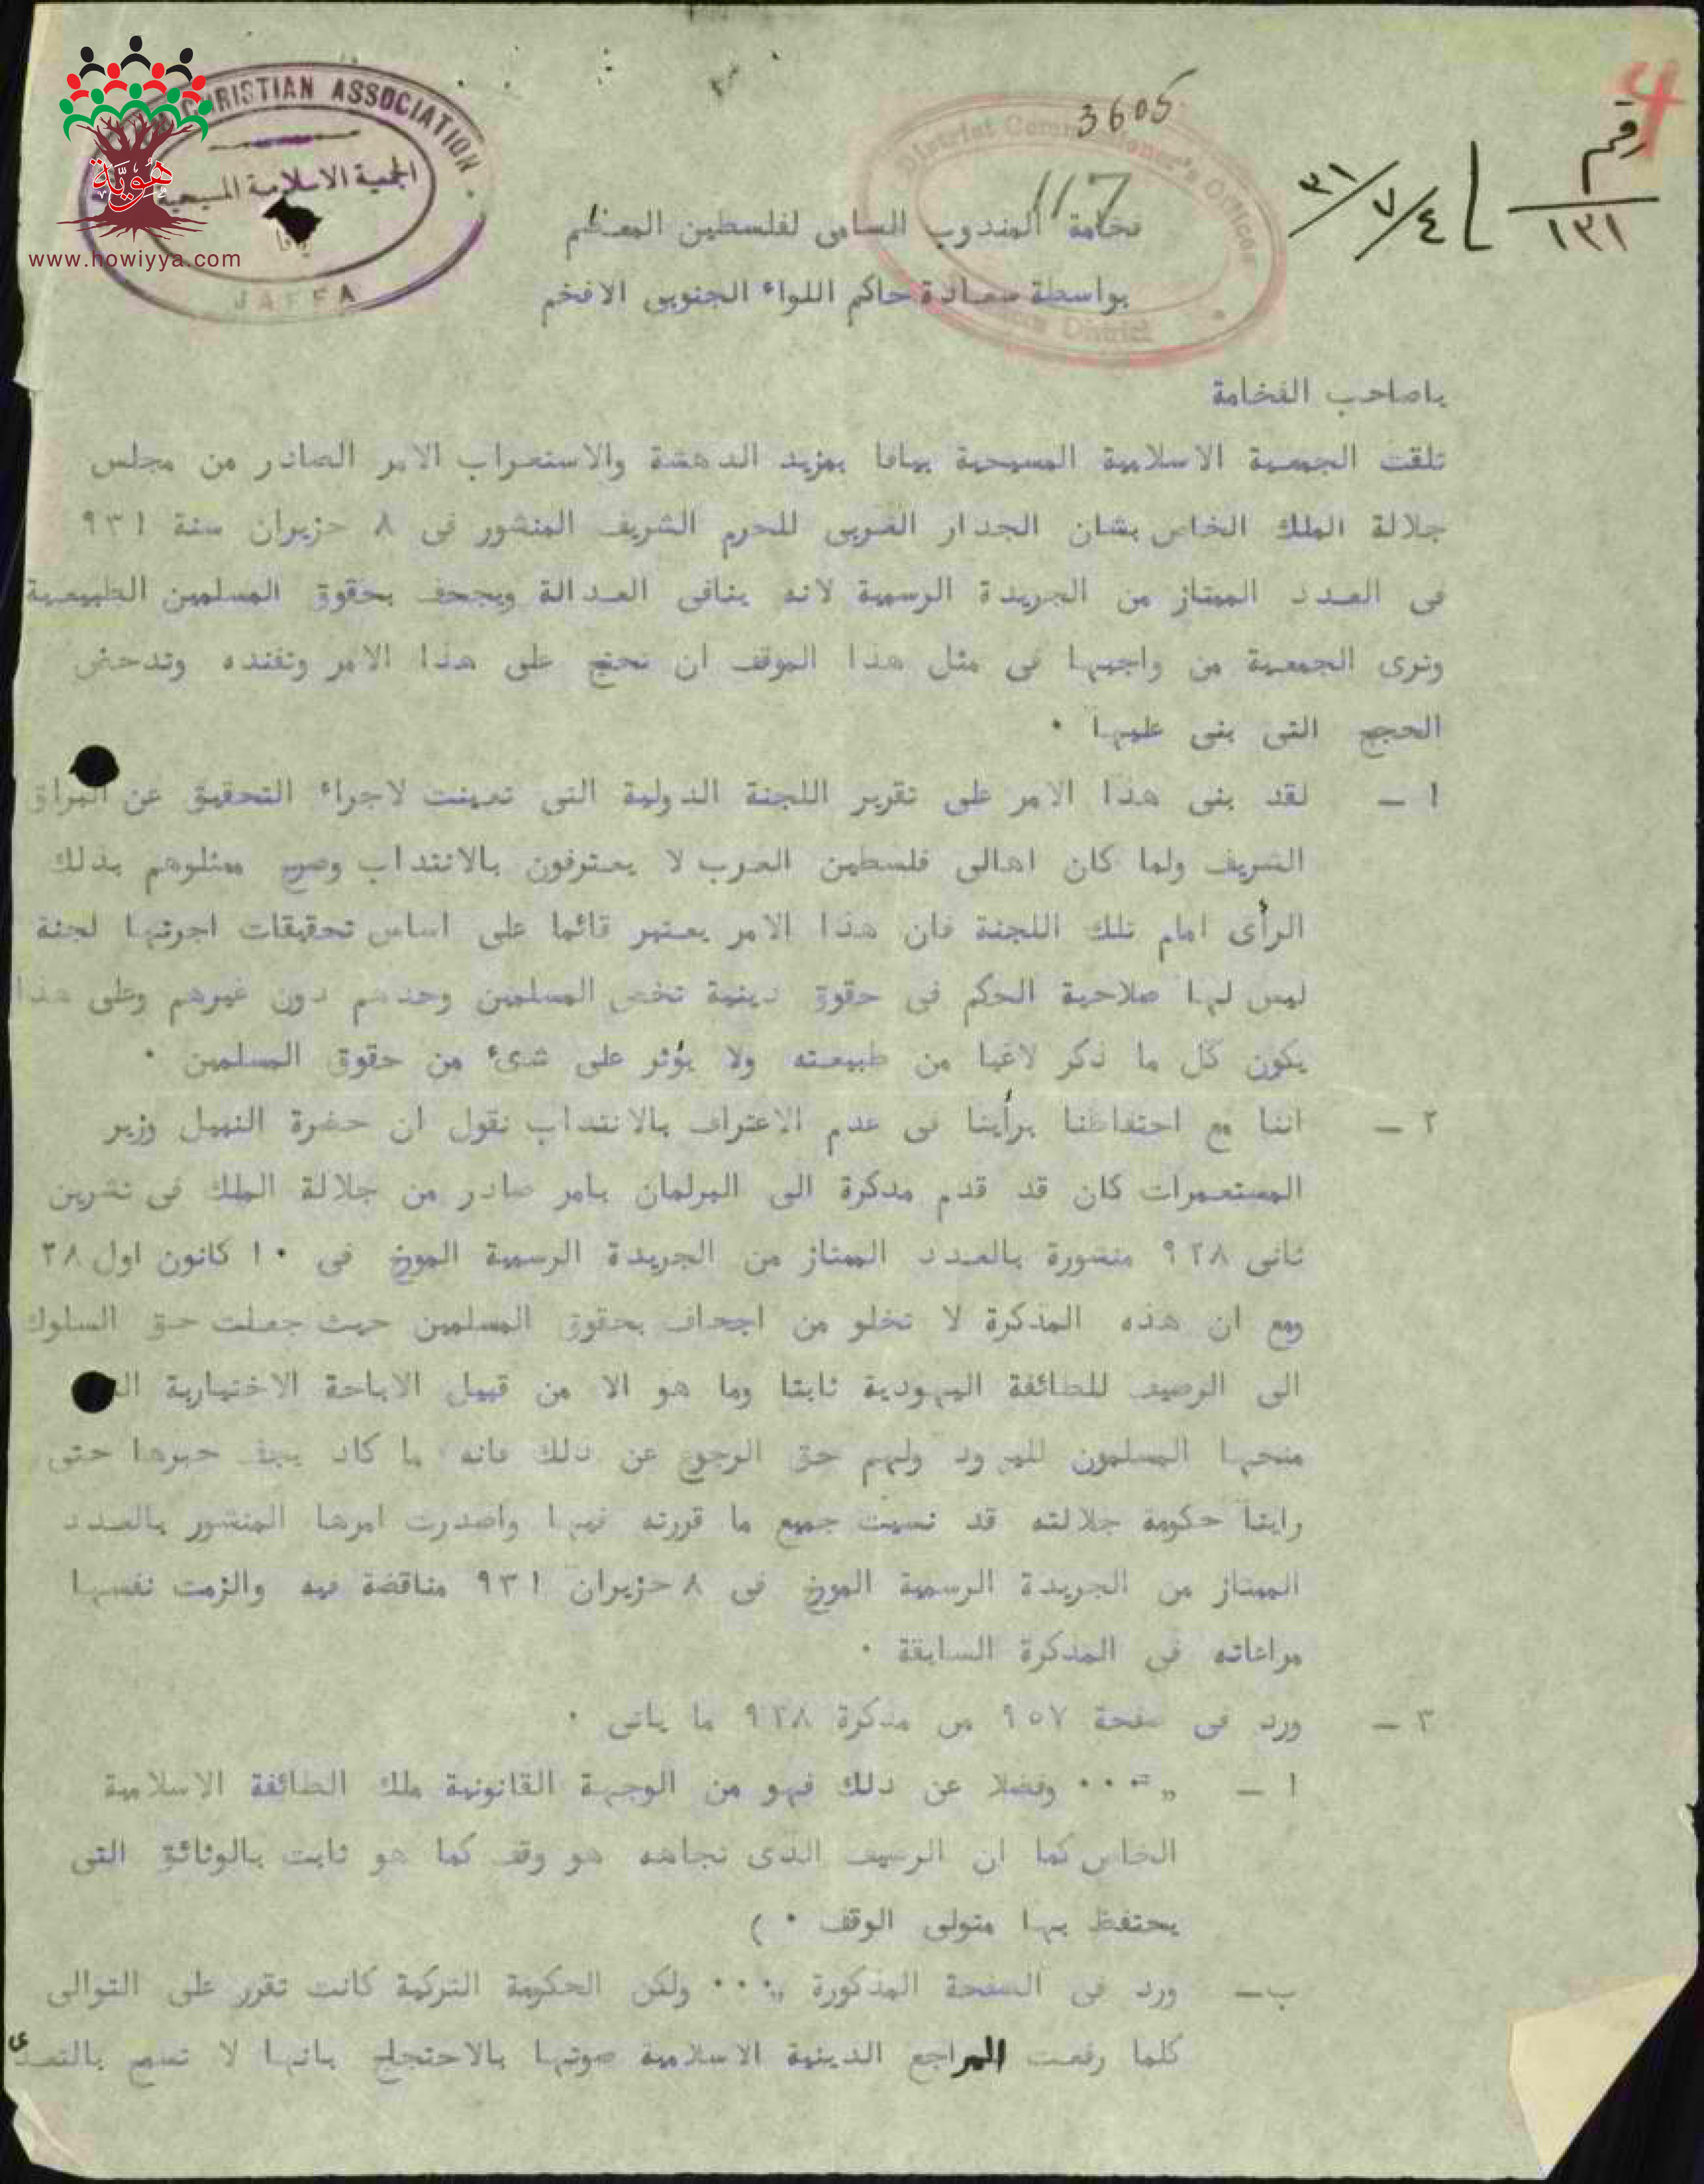 4
3605
117
رقم
١٣١
٣١/٧/٤
CHRISTIAN ASSOCIATION
الجمعية الاسلامية المسيحية
يافا
JAFFA
هُوِيَّة
www.howiyya.com
District Commissioner's Offices
District
فخامة المندوب السامى لفلسطين المعظم
بواسطة سعادة حاكم اللواء الجنوبى الافخم
ياصاحب الفخامة
تلقت الجمعية الاسلامية المسيحية بيافا بمزيد الدهشة والاستغراب الامر الصادر من مجلس
جلالة الملك الخاص بشان الجدار الغربى للحرم الشريف المنشور فى ٨ حزيران سنة ٩٣١
فى العدد الممتاز من الجريدة الرسمية لانه ينافى العدالة ويجحف بحقوق المسلمين الطبيعية
وترى الجمعية من واجبها فى مثل هذا الموقف ان تحتج على هذا الامر وتفنده وتدحض
الحجج التى بنى عليها ٠
١ – لقد بنى هذا الامر على تقرير اللجنة الدولية التى تعينت لاجراء التحقيق عن البراق
الشريف ولما كان اهالى فلسطين العرب لا يعترفون بالانتداب وصرح ممثلوهم بذلك
الرأى امام تلك اللجنة فان هذا الامر يعتبر قائما على اساس تحقيقات اجرتها لجنة
ليس لها صلاحية الحكم فى حقوق دينية تخص المسلمين وحدهم دون غيرهم وعلى هذا
يكون كل ما ذكر لاغيا من طبيعته ولا يؤثر على شئ من حقوق المسلمين ٠
٢ – اننا مع احتفاظنا برأينا فى عدم الاعتراف بالانتداب نقول ان حضرة النبيل وزير
المستعمرات كان قد قدم مدكرة الى البرلمان بامر صادر من جلالة الملك فى تشرين
ثانى ٩٢٨ منشورة بالعدد الممتاز من الجريدة الرسمية المورخ فى ١٠ كانون اول ٢٨
ومع ان هذه المذكرة لا تخلو من اجحاف بحقوق المسلمين حيث جعلت حق السلوك
الى الرصيف للطائفة اليهودية ثابتا وما هو الا من قبيل الاباحة الاختيارية
منحها المسلمون لليهود ولهم حق الرجوع عن ذلك فانه ما كاد يجف حبرها حتى
راينا حكومة جلالته قد نسيت جميع ما قررته فيها واصدرت امرها المنشور بالعدد
الممتاز من الجريدة الرسمية المورخ فى ٨ حزيران ٩٣١ مناقضة فيه والزمت نفسها
مراعاته فى المدكرة السابقة ٠
٣ – ورد فى صفحة ٩٥٧ من مذكرة ٩٢٨ ما ياتى ٠
ا – ,, ٠٠٠ وفضلا عن ذلك فهو من الوجهة القانونية ملك الطائفة الاسلامية
الخاص كما ان الرصيف الذى تجاهه هو وقف كما هو ثابت بالوثائق التى
يحتفظ بها متولى الوقف ٠ )
ب – ورد فى الصفحة المذكورة ,, ٠٠٠ ولكن الحكومة التركية كانت تقرر على التوالى
كلما رفعت المراجع الدينية الاسلامية صوتها بالاحتجاج بانها لا تسمح بالتعدى